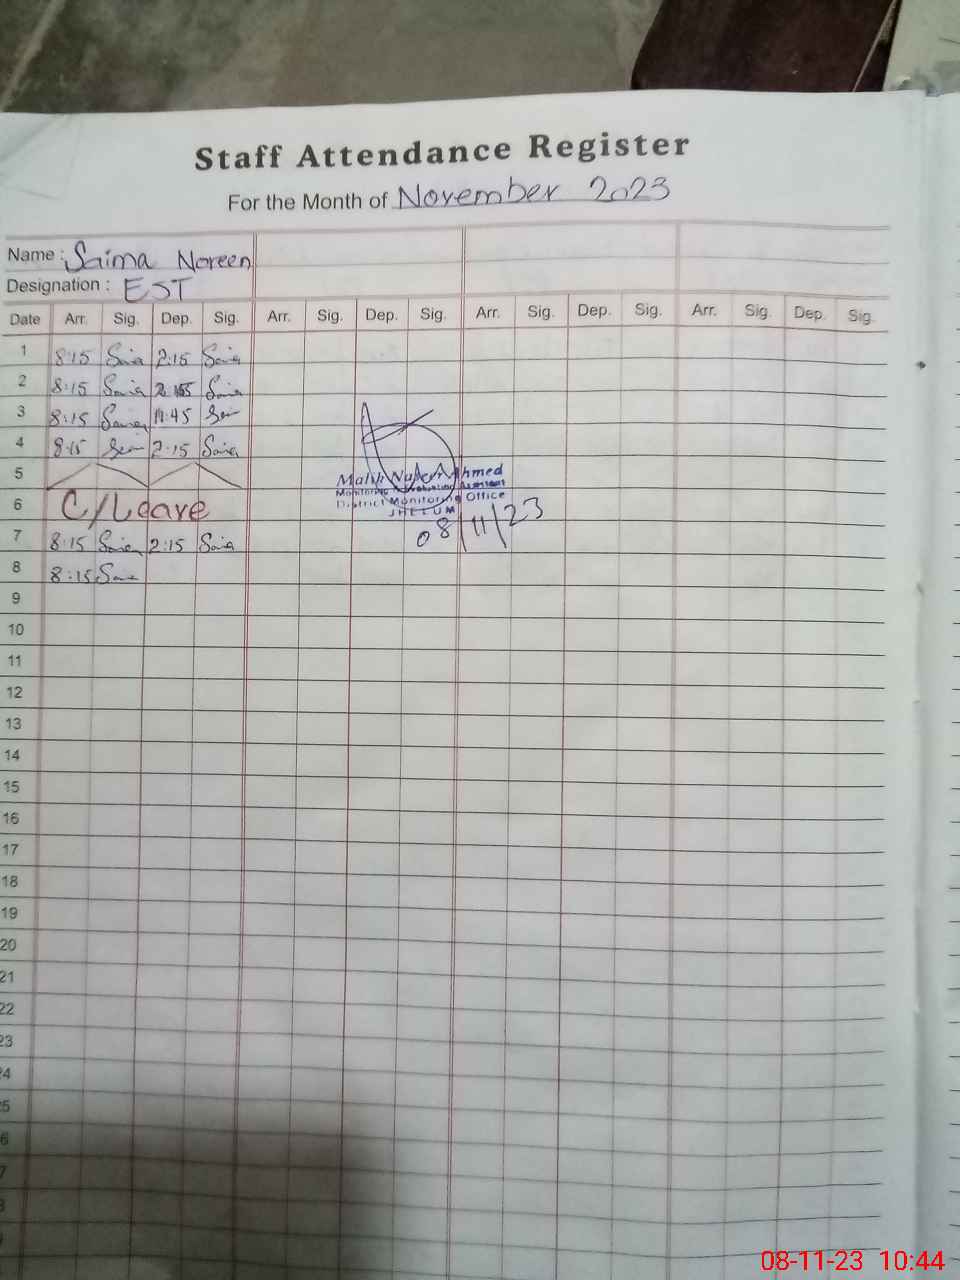 Staff Attendance Register
For the Month of November 2023
Name : Saima Noreen
Designation : EST
Date Arr. Sig. Dep. Sig. Arr. Sig. Dep. Sig. Arr. Sig. Dep. Sig. Arr. Sig. Dep. Sig.
1 8:15 Saima 2:15 Saima
2 8:15 Saima Saima
3 8:15 Saima 11:45
4 8:15 2:15 Saima
5
6 C/Leave
7 8:15 Saima 2:15 Saima
8 8:15 Saima
Ahmed
Monitoring Assistant
District Monitoring Office
JHELUM
08/11/23
9
10
11
12
13
14
15
16
17
18
19
20
21
22
23
24
25
08-11-23 10:44